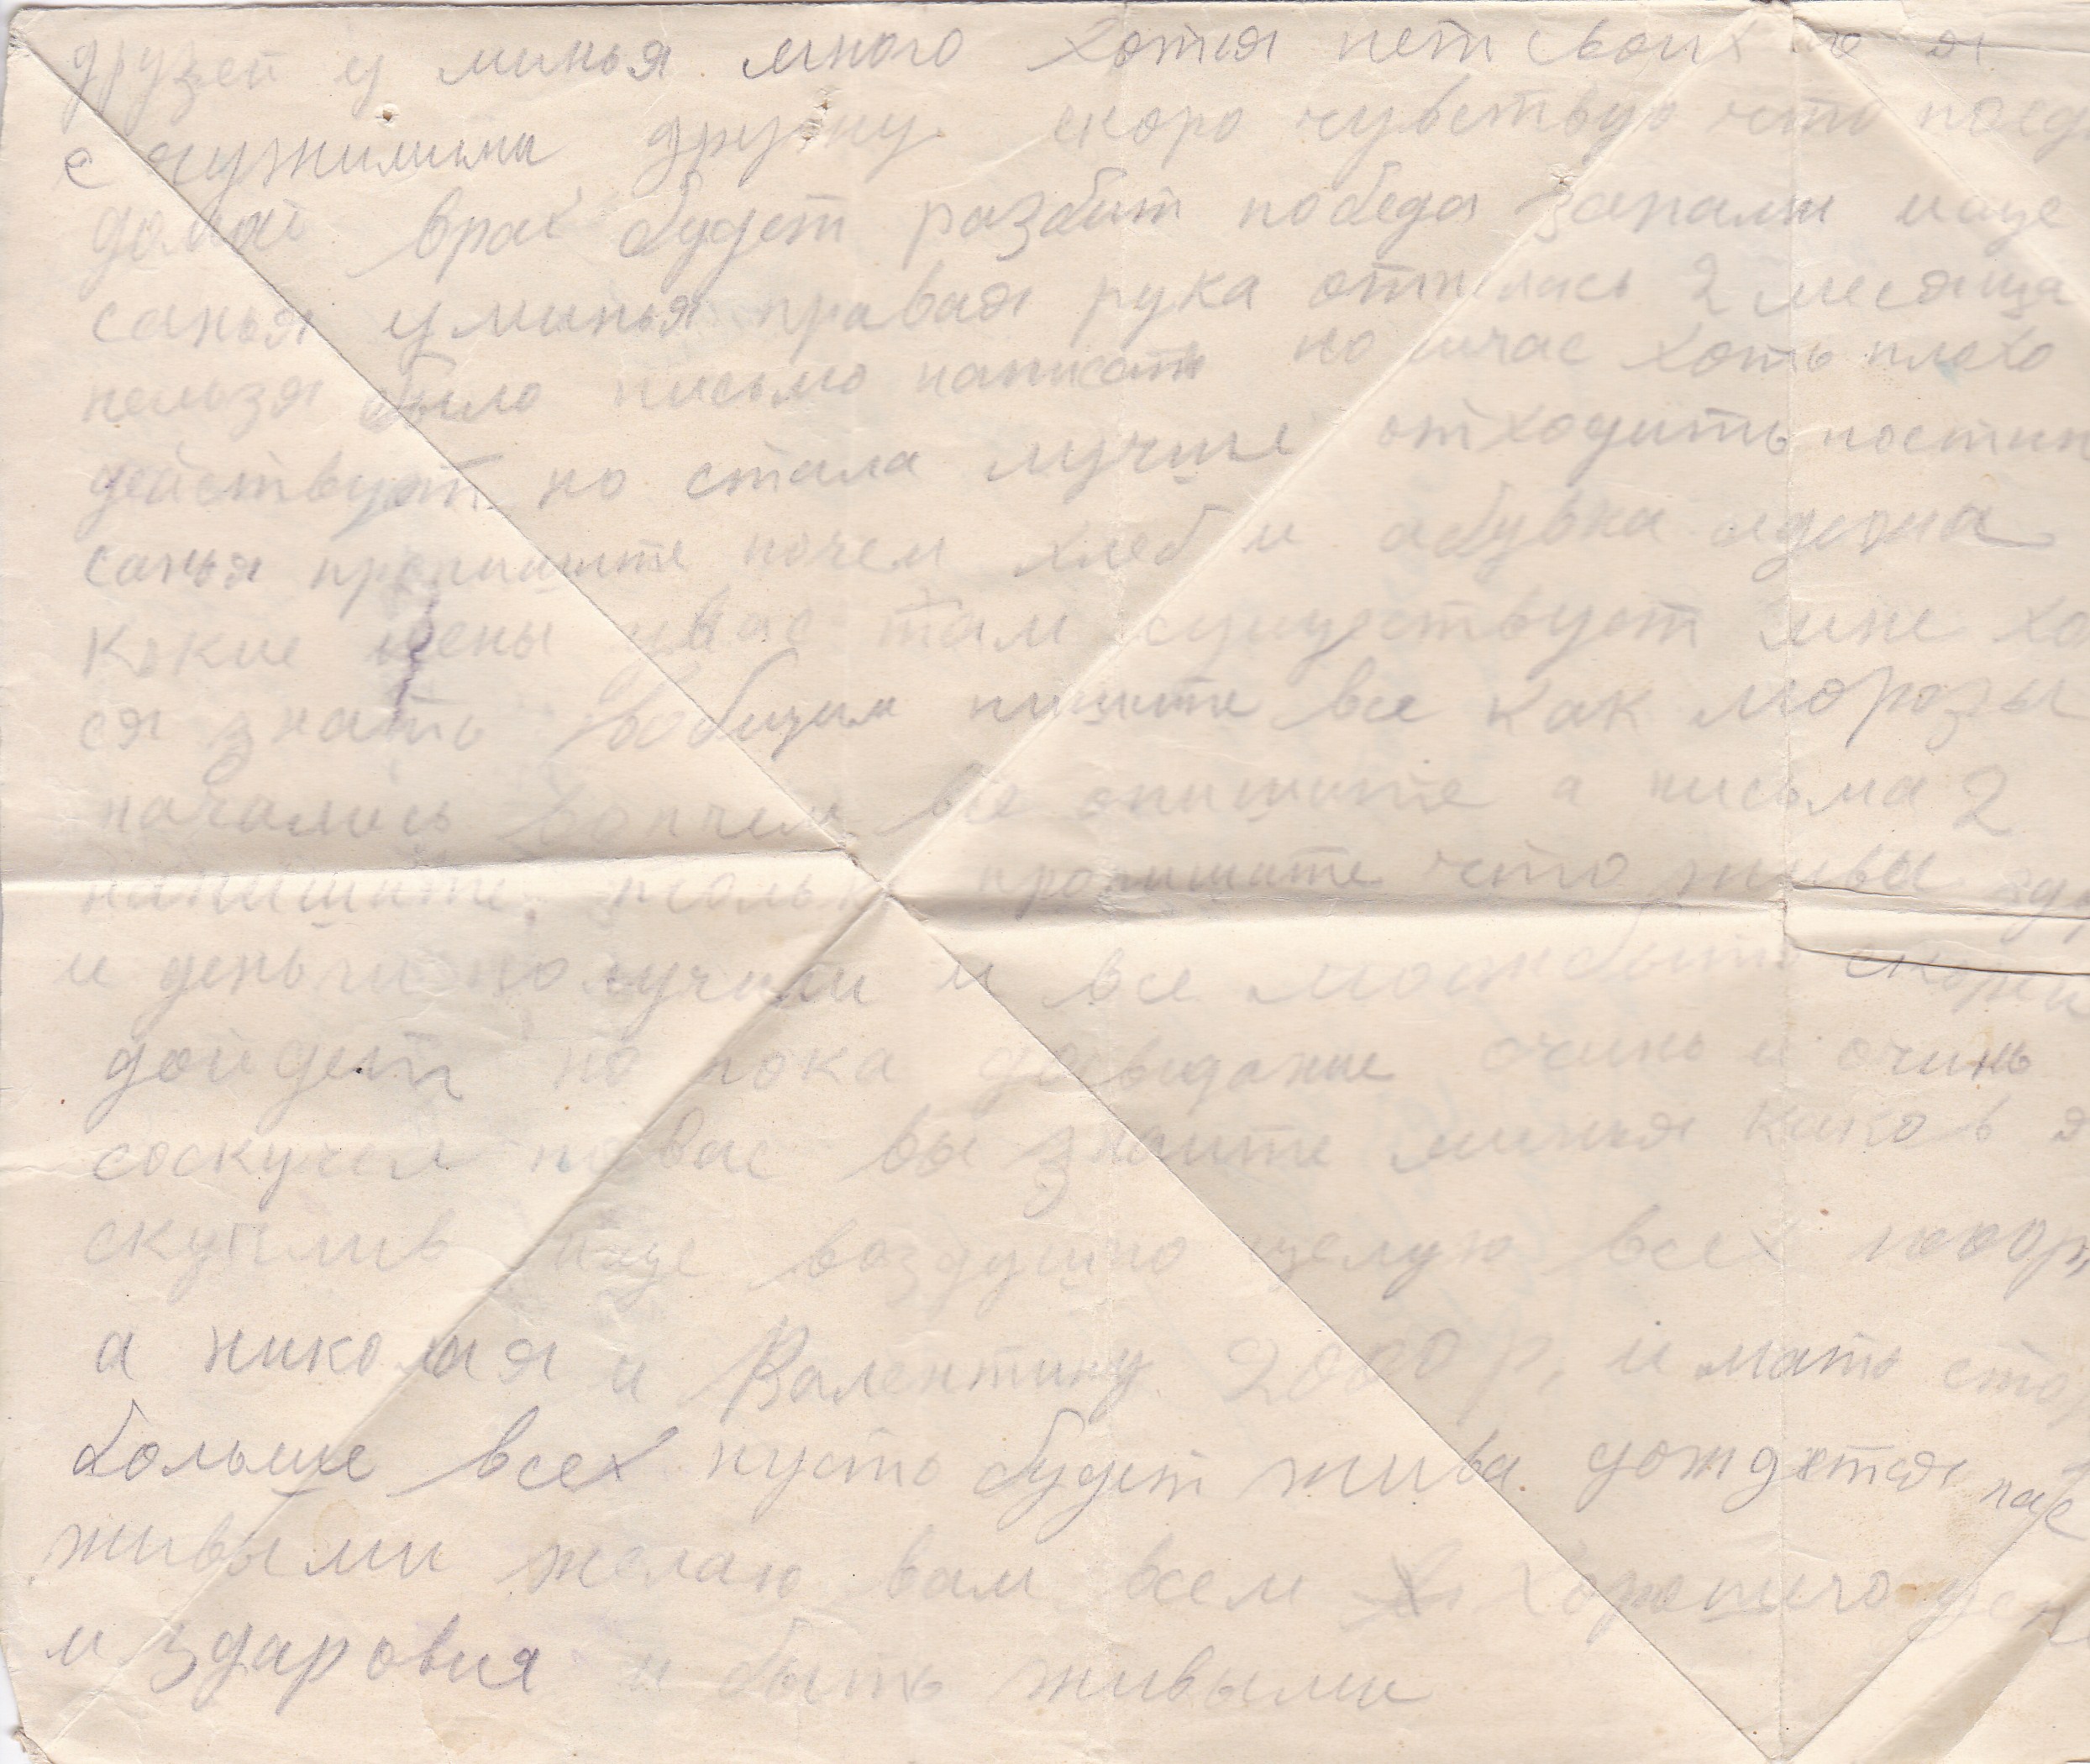 друзей у минья много хотя нет своих но я
с чужимими дружу скоро чувствую что поед
домой врах будет разбит победа занами ище
санья у минья правая рука отнялась 2 месяца
нельзя было письмо написать но щчас хоть плохо
действует но стала лучше отходить постип
санья пропишите почем хлеб и абувка адежа
какие цены увас там существует мне хо
ся знать вобщим пишите все как морозы
начались вопчем все опишите а письма 2
напишите только пропишите что живы здр
и деньги получили и все можнбыть скорей
дойдет но пока досвидание очинь и очинь
соскучел повас вы знаите минья каков я
скупилив ище воздушно целую всех по 1000 р,
а николая и Валентину 2000 р, и мать ста
больше всех пусть будет жива дождется нас
живыми желаю вам всем хорошичо
и здаровия и быть живыми